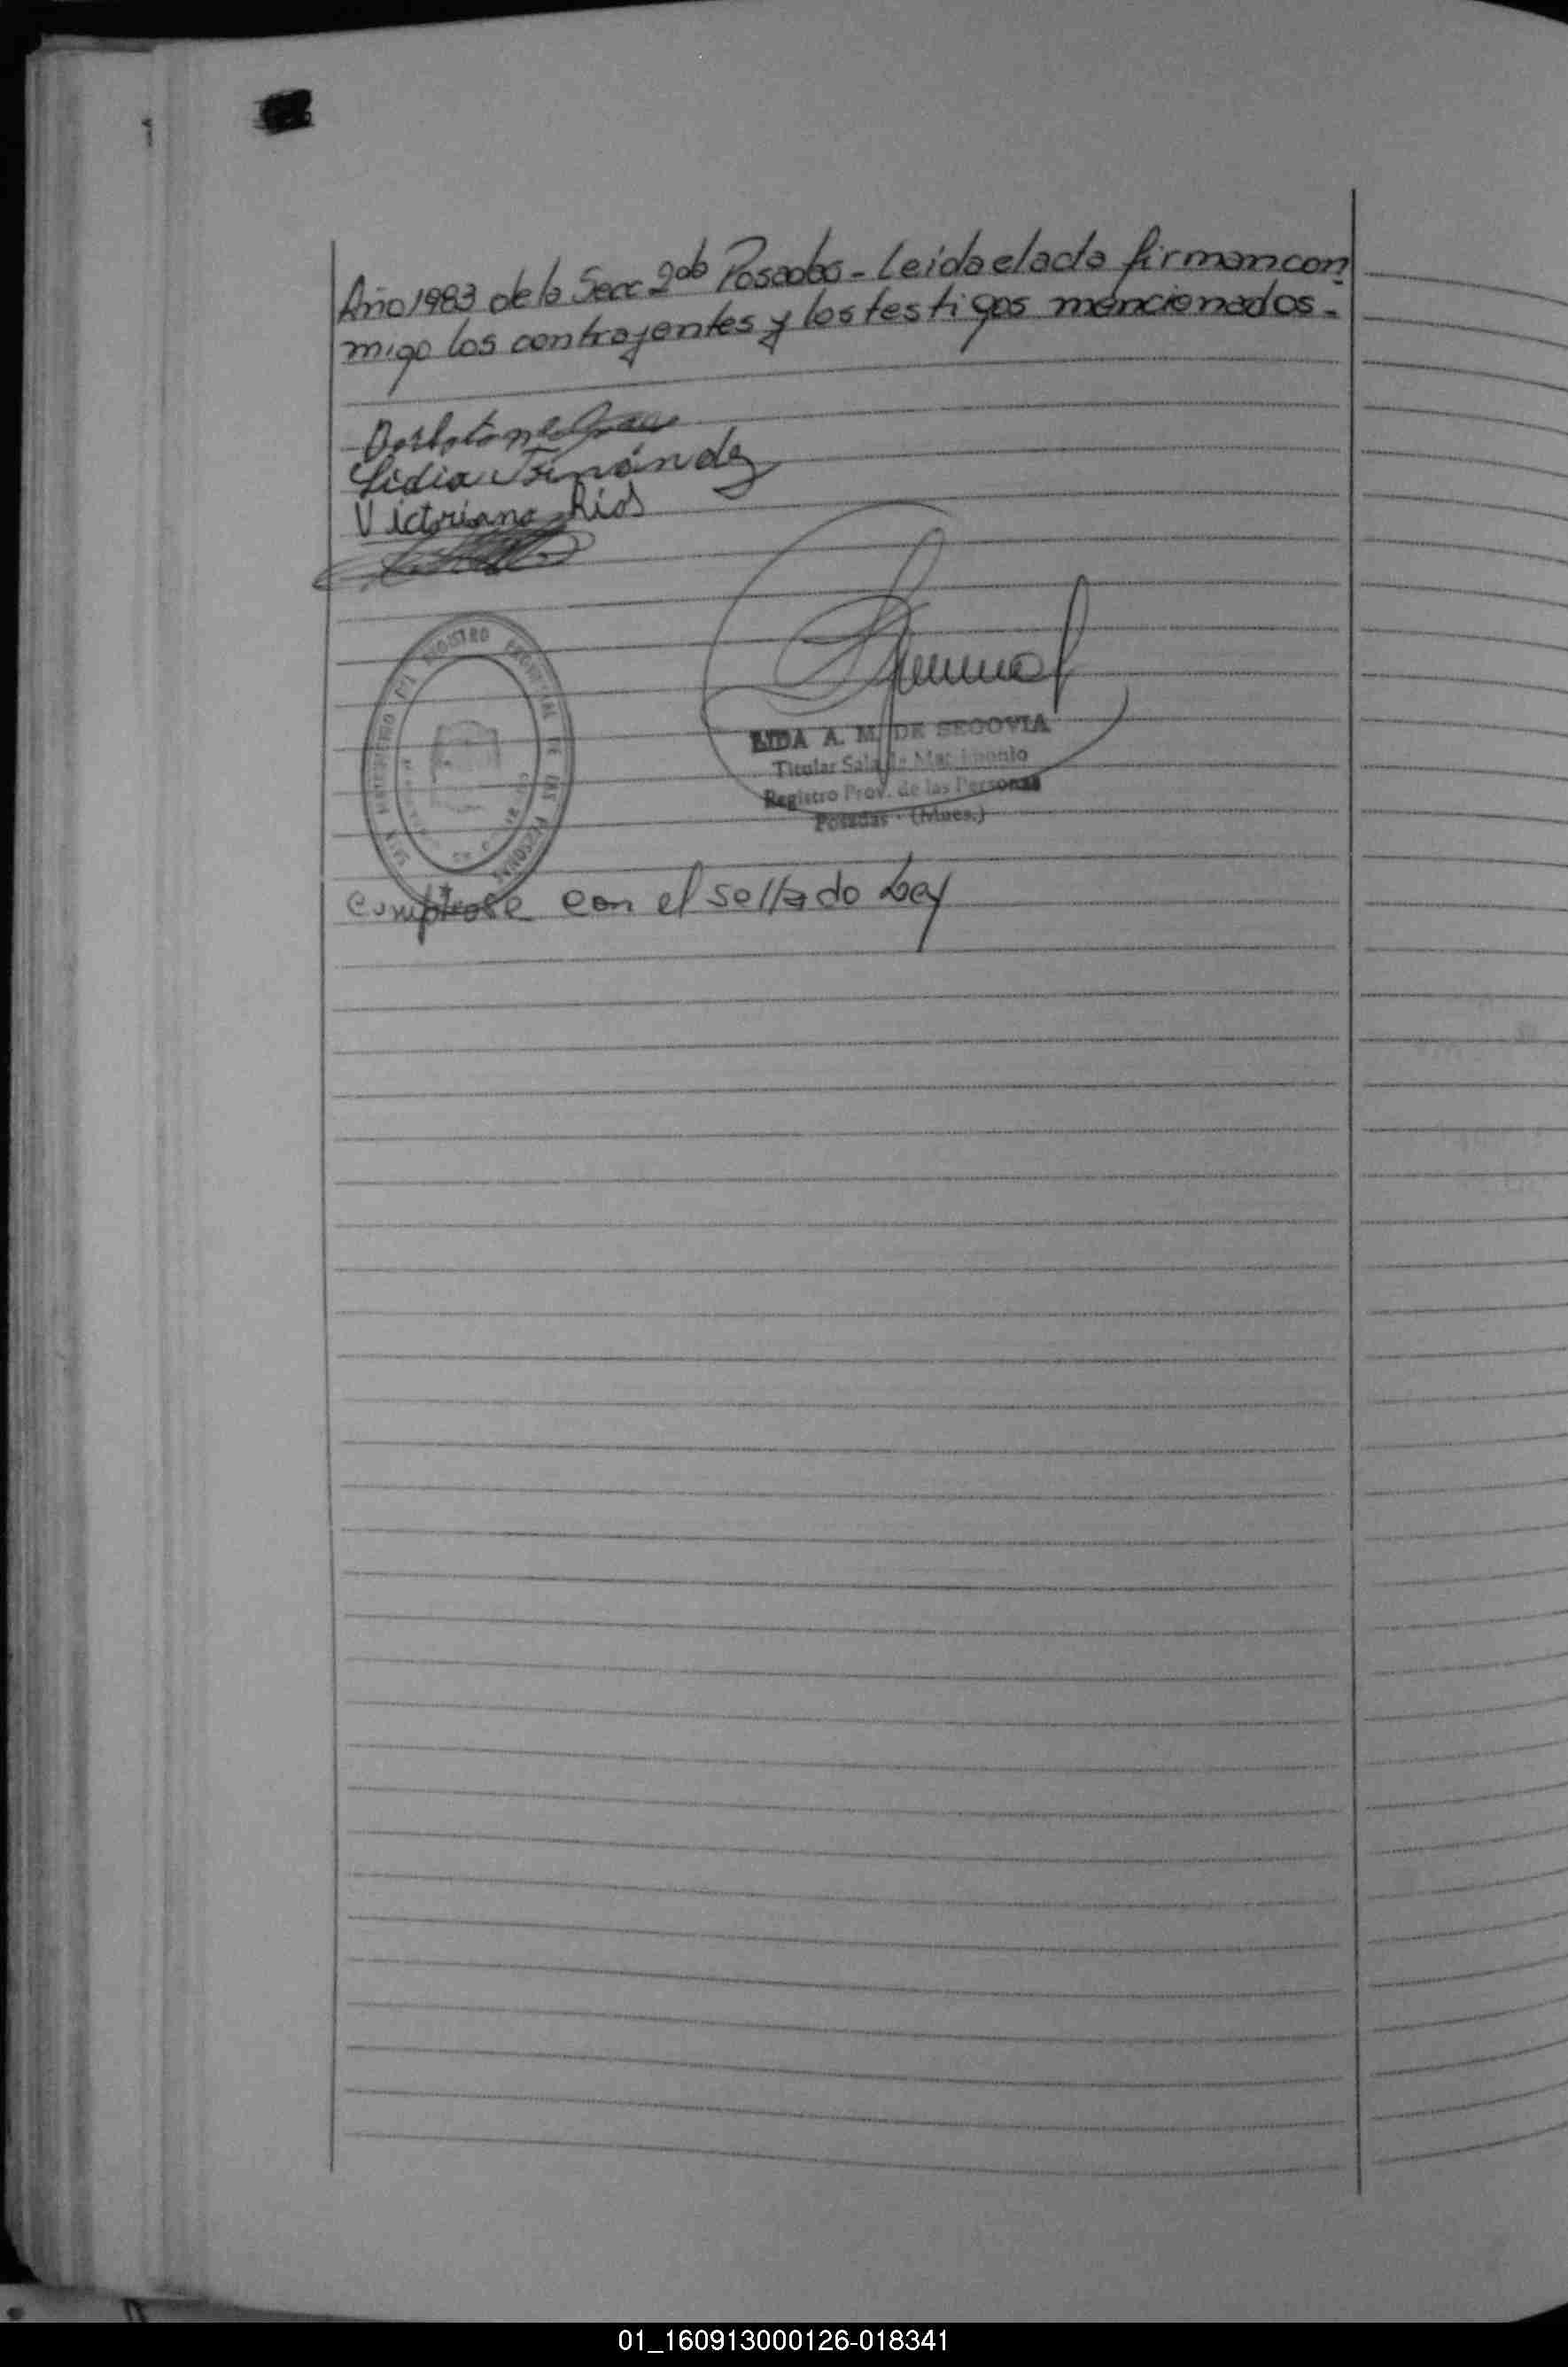 Año 1983 de la Secc 2da Posadas - Leida el acta firman con
migo los contrayentes y los testigos mencionados.-
Lidia
Victoriano Rios
SALA MATRIMONIO DEL REGISTRO PROVINCIAL DE LAS PERSONAS
LYDA A. M. DE SEGOVIA
Titular Sala de Matrimonio
Registro Prov. de las Personas
Posadas - (Mnes.)
Cumplase con el sellado Ley
01_160913000126-018341